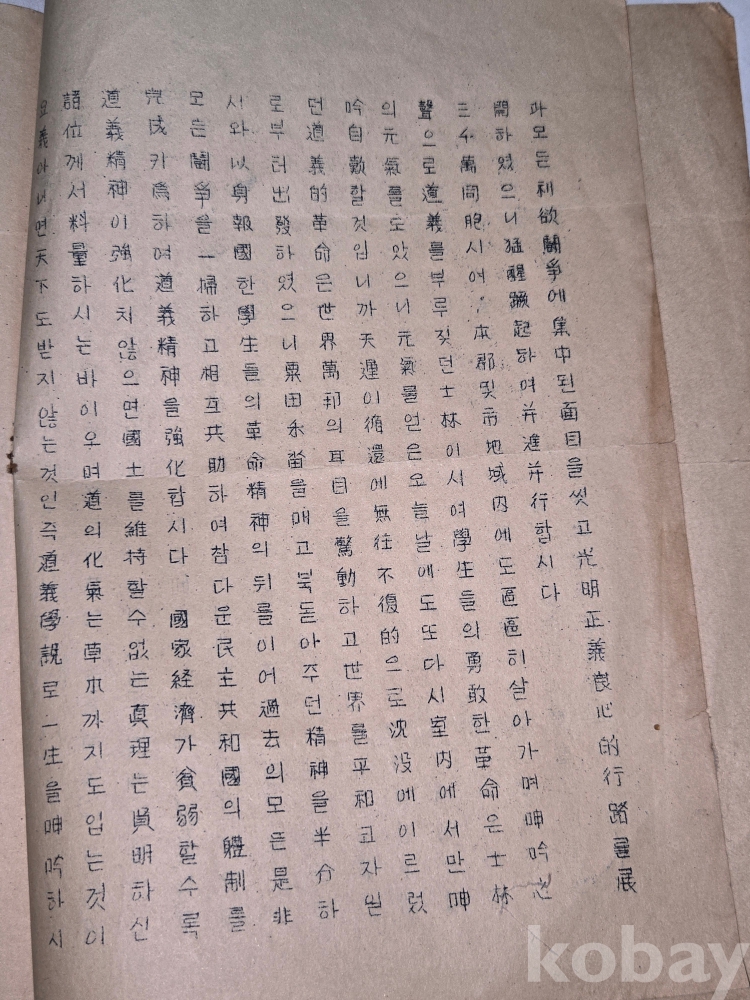 과모든利欲鬪爭에集中된面目을씻고光明正義良心的行路를展
開하였으니猛醒蹶起하여并進并行합시다
三千萬同胞시여, 本郡및市地域内에도區區히살아가며呻吟之
聲으로道義를부루짖던士林이시여學生들의勇敢한革命은士林
의元氣를도았으니元氣를얻은오늘날에도또다시室内에서만呻
吟自歎할것입니까天運이循還에無往不復的으로沈没에이르렀
던道義的革命은世界萬邦의耳目을驚動하고世界를平和고자된
로부터出發하였으니粟田禾畓을매고북돋아주던精神을半分하
시와以身報國한學生들의革命精神의뒤를이어過去의모든是非
모든鬪爭을一掃하고相互共助하여참다운民主共和國의體制를
完成키爲하여道義精神을強化합시다 國家経濟가貧弱할수록
道義精神이強化치않으면國土를維持할수없는真理는賢明하신
諸位께서料量하시는바이오며道의化氣는草木까지도입는것이
요義아니면天下도받지않는것인즉道義學說로一生을呻吟하시
kobay